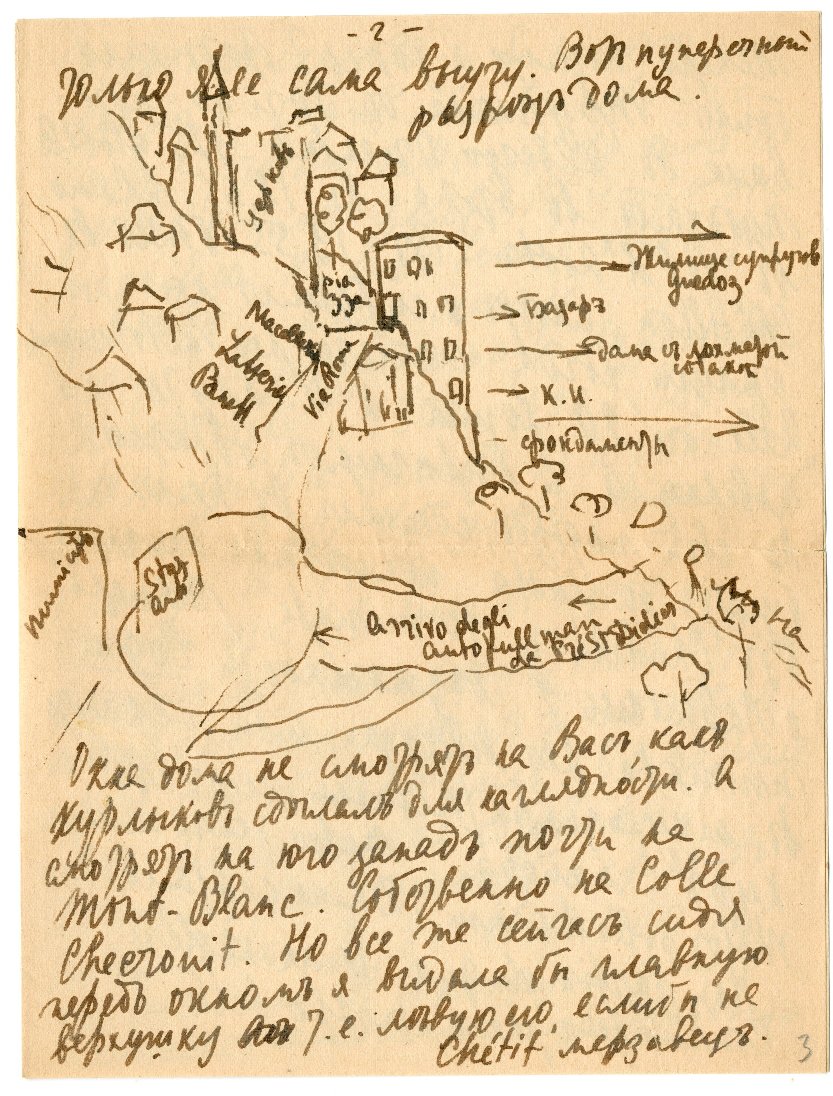 - 2 -
только я ее сама выучу. Вотъ поперечный
разрѣзъ дома.
Церковь
piazza
Жилище супруговъ
Базаръ
Дама съ лохматой
собакой
К.И.
фондаменты
Macelleria
Latteria
Panett.
Via Roma
Municipio
Staz
auto
arrivo degli
autopullman
da Pré St Didier
Окна дома не смотрятъ на Васъ какъ
Курлыковъ сдѣлалъ для наглядности. А
смотрятъ на юго западъ почти на
Mont-Blanc. Собственно на Colle
Checrouit. Но все же сейчасъ сидя
передъ окномъ я видѣла бы главную
верхушку т.е. лѣвую его, еслибы не
Chétif мерзавецъ.
3